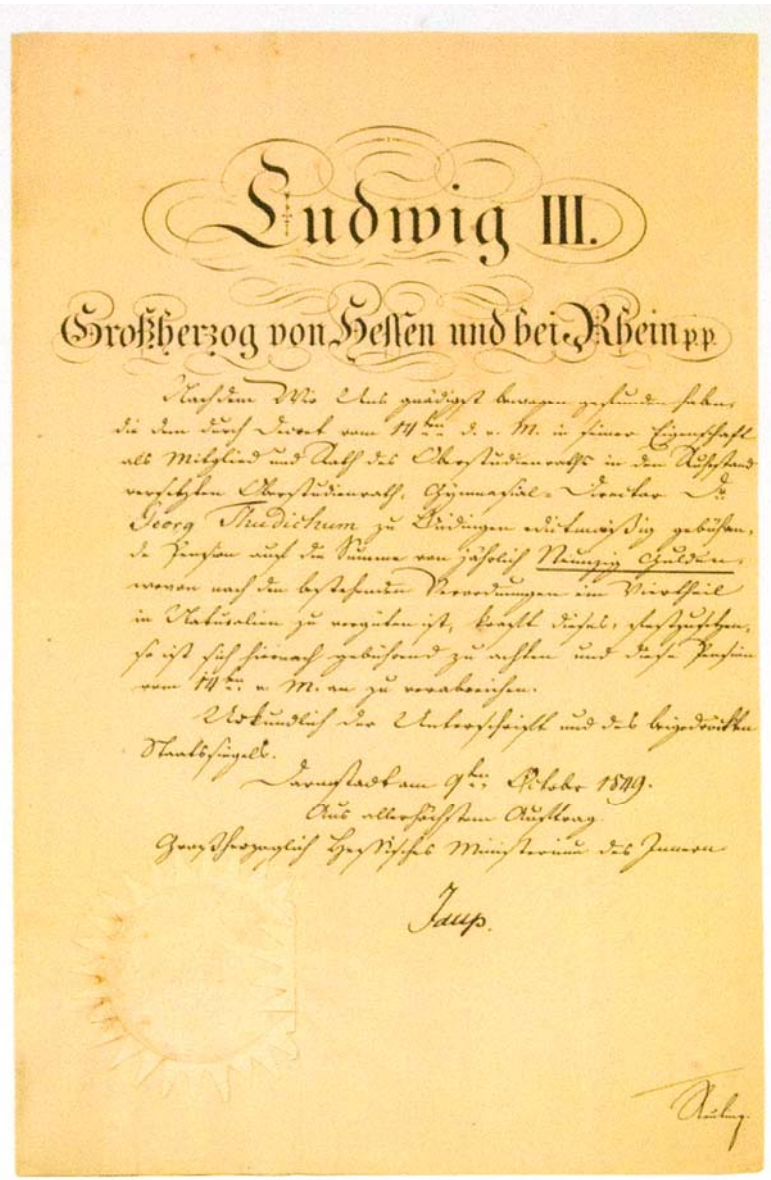 Ludwig III.
Großherzog von Hessen und bei Rhein p.p.
Nachdem Wir Uns gnädigst bewogen gefunden haben,
die dem durch Decret vom 14ten d. v. M. in seiner Eigenschaft
als Mitglied und Rath des Oberstudienraths in den Ruhestand
versetzten Oberstudienrath, Gymnasial-Director Dr.
Georg Thudichum zu Büdingen edictmäßig gebühren-
de Pension auf die Summe von jährlich Neunzig Gulden,
wovon nach den bestehenden Verordnungen ein Viertheil
in Naturalien zu vergüten ist, kraft dieses, festzusetzen,
so ist sich hiernach gebührend zu achten und diese Pension
vom 14ten v. M. an zu verabreichen.
Urkundlich der Unterschrift und des beigedrückten
Staatssiegels.
Darmstadt am 9ten October 1849.
Aus allerhöchstem Auftrag.
Großherzoglich Hessisches Ministerium des Innern
Jaup.